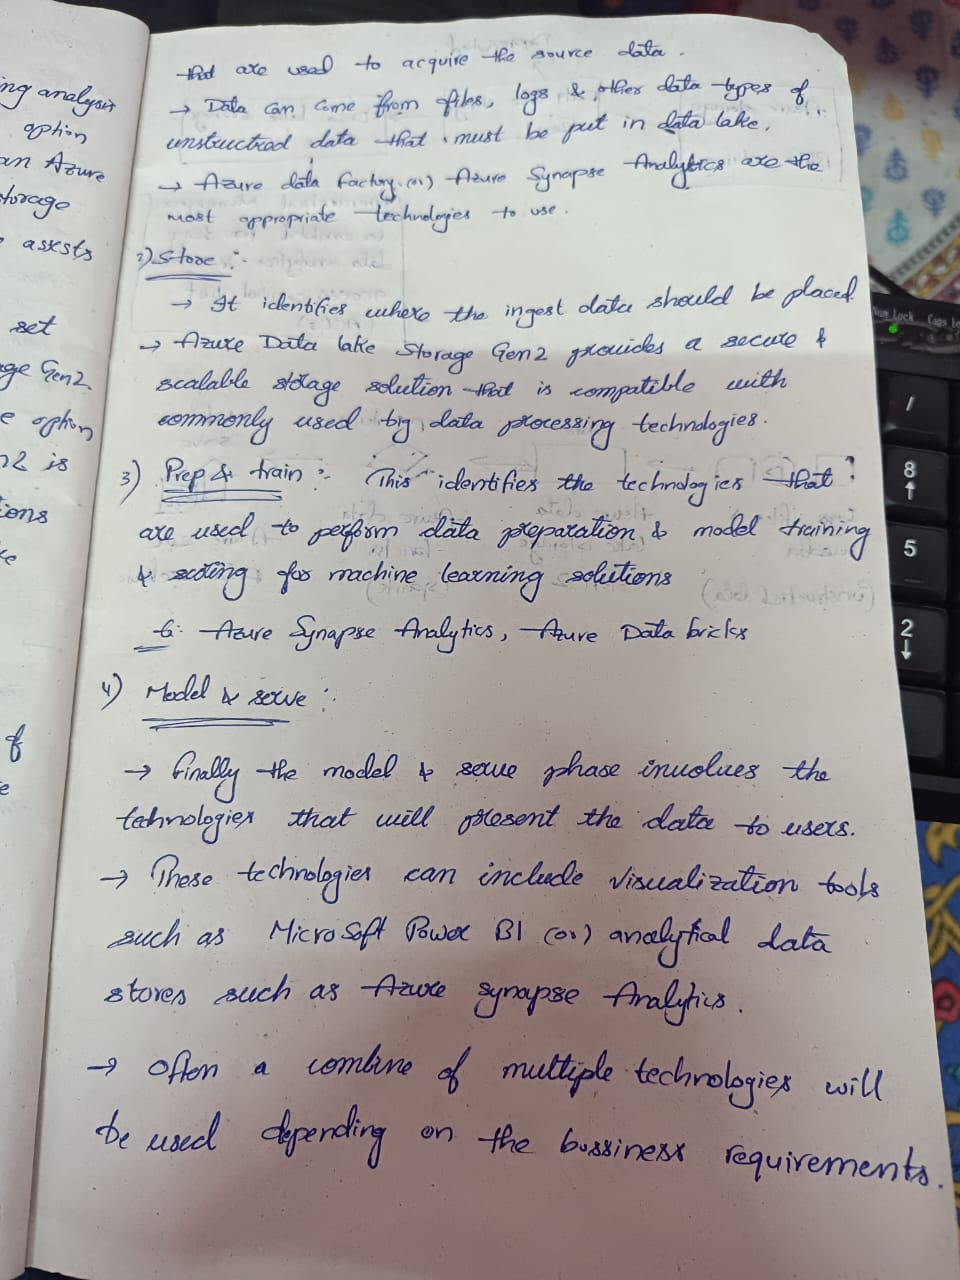 ing analysis
option
an Azure
torage
assets
set
ge Gen2
e option
n2 is
ions
of
that are used to acquire the source data.
→ Data can come from files, logs & other data types of
unstructred data that must be put in data lake.
→ Azure data factory (or) Azure Synapse Analytics are the
most appropriate technologies to use.
2) Store :-
→ It identifies where the ingest data should be placed.
→ Azure Data lake Storage Gen2 provides a secure &
scalable storage solution that is compatible with
commonly used big data processing technologies.
3) Prep & train :- This identifies the technologies that
are used to perform data preparation & model training
& scoring for machine learning solutions
Eg: Azure Synapse Analytics, Azure Data bricks
4) Model & serve :
→ finally the model & serve phase involves the
technologies that will present the data to users.
→ These technologies can include visualization tools
such as MicroSoft Power BI (or) analytical data
stores such as Azure synapse Analytics.
→ Often a combine of multiple technologies will
be used depending on the bussiness requirements.
Num Lock Caps Lo
/
8
5
2